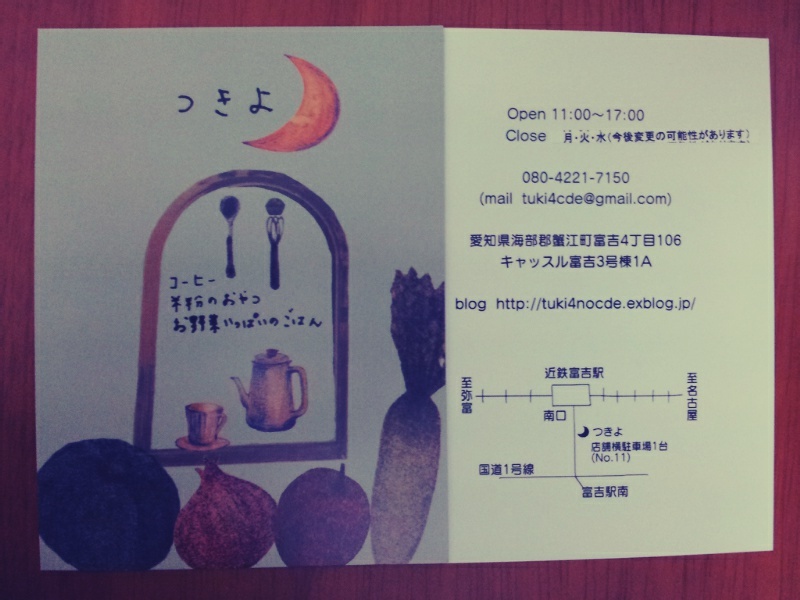 つきよ
コーヒー
米粉のおやつ
お野菜いっぱいのごはん
Open 11:00～17:00
Close 月・火・水(今後変更の可能性があります)
080-4221-7150
(mail tuki4cde@gmail.com)
愛知県海部郡蟹江町富吉4丁目106
キャッスル富吉3号棟1A
blog http://tuki4nocde.exblog.jp/
近鉄富吉駅
至弥富
至名古屋
南口
つきよ
店舗横駐車場1台
(No.11)
国道1号線
富吉駅南